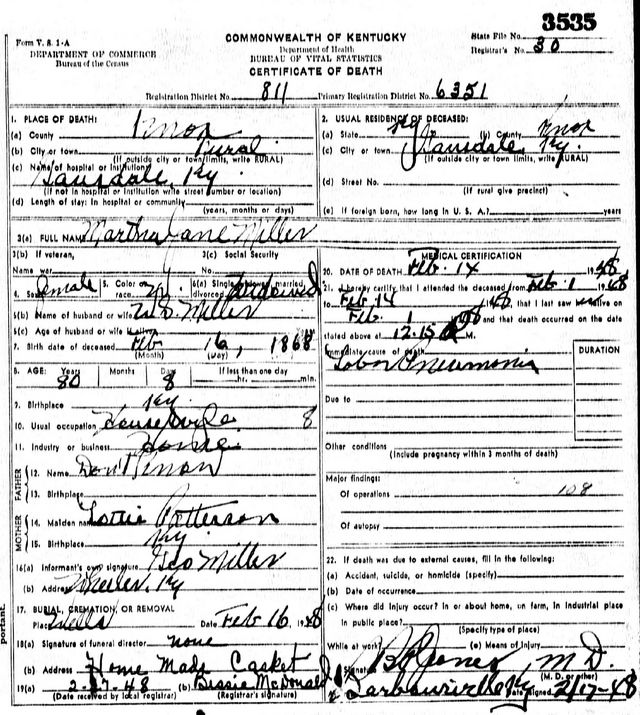 3535
Form V. S. 1-A
DEPARTMENT OF COMMERCE
Bureau of the Census
COMMONWEALTH OF KENTUCKY
Department of Health
BUREAU OF VITAL STATISTICS
CERTIFICATE OF DEATH
State File No.
Registrar's No. 30
Registration District No. 811 Primary Registration District No. 6351
1. PLACE OF DEATH:
(a) County Knox
(b) City or town Rural
(If outside city or town limits, write RURAL)
(c) Name of hospital or institution:
Ky
(If not in hospital or institution write street number or location)
(d) Length of stay: In hospital or community
(years, months or days)
2. USUAL RESIDENCE OF DECEASED:
(a) State Ky (b) County Knox
(c) City or town Ky.
(If outside city or town limits, write RURAL)
(d) Street No.
(If rural give precinct)
(e) If foreign born, how long in U. S. A.? years
3(a) FULL NAME Martha Jane Miller
3(b) If veteran,
Name war
3(c) Social Security
No.
4. Sex Female 5. Color or race W 6(a) Single, widowed, married, divorced Widowed
6(b) Name of husband or wife Miller
6(c) Age of husband or wife if alive Years
7. Birth date of deceased Feb 16, 1868
(Month) (Day)
8. AGE: Years Months Days If less than one day
80 8 hr. min.
9. Birthplace Ky
10. Usual occupation Housewife 8
11. Industry or business Home
FATHER
12. Name
13. Birthplace
MOTHER
14. Maiden name Patterson
15. Birthplace Ky
16(a) Informant's own signature Geo Miller
(b) Address Wheeler, Ky
17. BURIAL, CREMATION, OR REMOVAL
Place Wells Date Feb 16 1948
18(a) Signature of funeral director none
(b) Address Home Made Casket
19(a) 2-27-48 (b) Bessie McDonald
(Date received by local registrar) (Registrar's signature)
MEDICAL CERTIFICATION
20. DATE OF DEATH Feb. 14 1948
21. I hereby certify that I attended the deceased from Feb. 1 1948
to Feb. 14 1948, that I last saw alive on
Feb. 1 1948 and that death occurred on the date
stated above at 12:15 M.
Immediate cause of death
Lobar Pneumonia
DURATION
Due to
Other conditions
(Include pregnancy within 3 months of death)
Major findings:
Of operations 108
Of autopsy
22. If death was due to external causes, fill in the following:
(a) Accident, suicide, or homicide (specify)
(b) Date of occurrence
(c) Where did injury occur? In or about home, on farm, in industrial place
in public place?
(Specify type of place)
While at work? (e) Means of injury
Signature Jones M D.
(M. D. or other)
Barbourville Ky Date signed 2/17-48
portant.